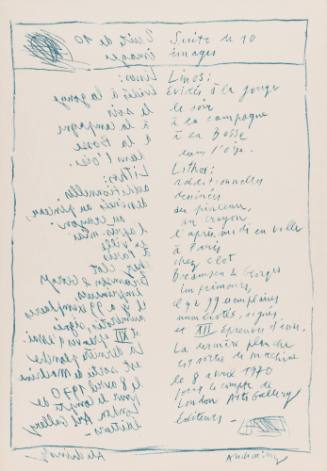 Suite de 10
images
Linos:
évidés à la gouge
le soir
à la campagne
à la Bosse
dans l'Oise.
Lithos:
additionnelles
dessinées
au pinceau,
au crayon
l'après midi en ville
à Paris
chez Clot
Bramsen & Georges
imprimeurs,
il y a 99 exemplaires
numérotés, signés
et XII épreuves d'essai.
La dernière planche
est sortie de machine
le 8 avril 1970
pour le compte de
London Arts Gallery
éditeurs -
Suite de 10
images
Linos:
évidés à la gouge
le soir
à la campagne
à la Bosse
dans l'Oise.
Lithos:
additionnelles
dessinées au pinceau,
au crayon
l'après midi
à Paris
chez Clot
Bramsen & Georges
imprimeurs
il y a 99 exemplaires
numérotés, signés
et XII épreuves d'essai.
La dernière planche
est sortie de Machine
le 8 avril 1970
pour le compte de
London Arts Gallery
éditeurs -